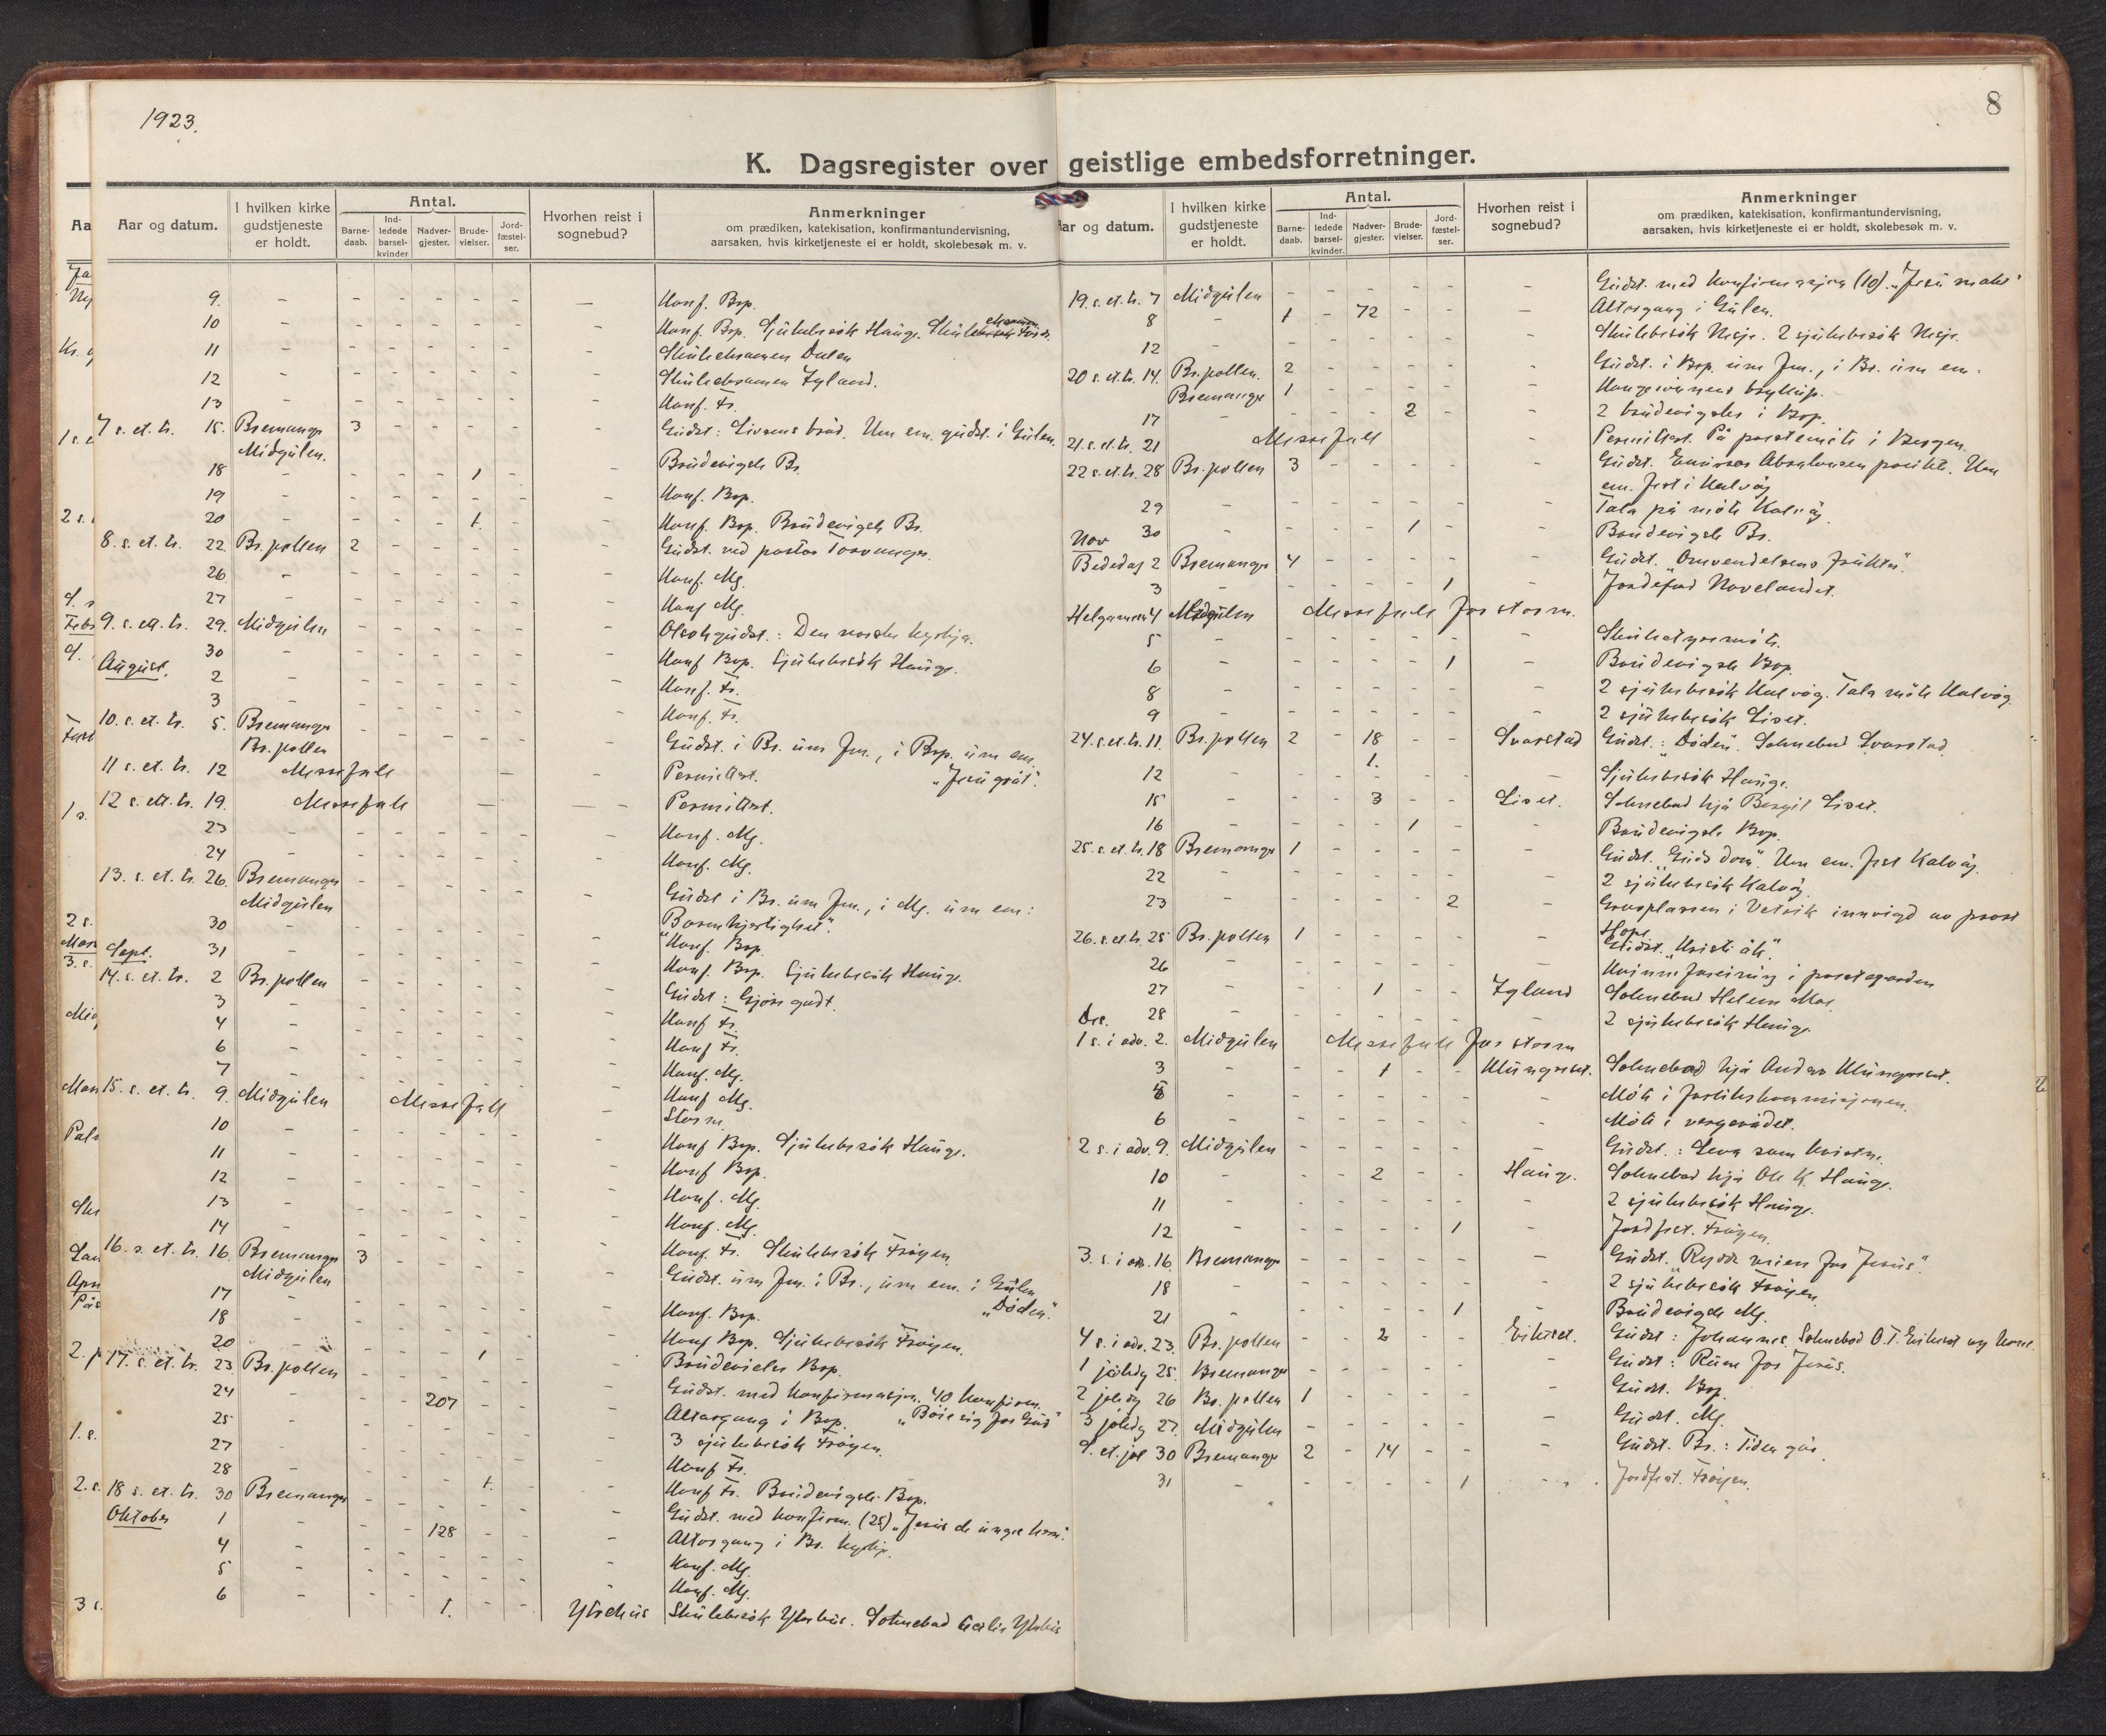 1923.
8
K. Dagsregister over geistlige embedsforretninger.
Aar og datum.
I hvilken kirke gudstjeneste er holdt.
Antal.
Barne-daab.
Ind-ledede barsel-kvinder
Nadver-gjester.
Brude-vielser.
Jord-fæstel-ser.
Hvorhen reist i sognebud?
Anmerkninger
om prædiken, katekisation, konfirmantundervisning,
aarsaken, hvis kirketjeneste ei er holdt, skolebesøk m. v.
9. - - - - - - — Konf. Brp.
10 - - - - - - - Konf. Brp. Sjukebesök Hauge.
11 - - - - - - - Skuleeksamen Dalen
12 - - - - - - - Skuleeksamen Igland.
13 - - - - - - - Konf. Fr.
7 s. et. tr. 15. Bremanger 3 - - - - - Gudst: Livsens bröd. Um em. gudst. i Gulen.
Midgulen.
18 - - - - 1 - - Brudevigsle Br.
19 - - - - - - - Konf. Brp.
20 - - - - 1. - - Konf. Brp. Brudevigsle Br.
8. s. et. tr. 22. Br.pollen 2 - - - - - Gudst. ved pastor Torvanger.
26. - - - - - - - Konf. Mg.
27 - - - - - - - Konf Mg.
9. s. et. tr. 29. Midgulen - - - - - - Olsokgudst.: Den norske kyrkja.
30 - - - - - - - Konf Brp. Sjukebesök Hauge.
August. 2 - - - - - - - Konf. Fr.
3 - - - - - - - Konf. Fr.
10. s. et. tr. 5. Bremanger - - - - - - Gudst. i Br. um fm., i Brp. um em.
Br. pollen „Jesu gråt“.
11 s. et. tr. 12 Messefall — Permittert.
12 s. et. tr. 19. Messefall — — Permittert.
23 - - - - - - - Konf. Mg.
24 - - - - - - - Konf. Mg.
13. s. et. tr. 26. Bremanger - - - - - - Gudst i Br. um fm., i Mg. um em:
Midgulen „Barmhjertighet“.
30 - - - - - - - Konf. Brp.
31 - - - - - - - Konf. Brp. Sjukebesök Hauge.
Sept.
14. s. et. tr. 2 Br. pollen - - - - - - Gudst: Gjöre godt.
3 - - - - - - - Konf Fr.
4 - - - - - - - Konf Fr.
6 - - - - - - - Konf. Mg.
7 - - - - - - - Konf Mg.
15. s. et. tr. 9. Midgulen Messefall - Storm.
10 - - - - - - - Konf Brp. Sjukebesök Hauge.
11 - - - - - - - Konf Brp.
12 - - - - - - - Konf. Mg.
13 - - - - - - - Konf. Mg.
14 - - - - - - - Konf. Fr. Skulebesök Fröyen.
16. s. et. tr. 16. Bremanger 3 - - - - - Gudst. um fm. i Br., um em. i Gulen
Midgulen „Döden“.
17 - - - - - - - Konf. Brp.
18 - - - - - - - Konf Brp. Sjukebesök Fröyen.
20 - - - - 1 - - Brudevielse Brp.
17. s. et. tr. 23. Br. pollen - - - - - - Gudst. med konfirmasjon. 40 konfirm.
„Böie sig for Gud“
24 - - - 207 - - - Altargang i Brp.
25 - - - - - - - 3 sjukebesök Fröyen.
27 - - - - - - - Konf Fr.
28 - - - - 1. - - Konf Fr. Brudevigsle Brp.
18 s. et. tr. 30 Bremanger - - - - - - Gudst. med konfirm. (25)
Oktober 1 - - - 128 - - - Altargang i Br. kyrkje.
4 - - - - - - - Konf. Mg.
5 - - - - - - - Konf. Mg.
6 - - - 1. - - Ytrehus Skulebesök Ytrehus. Soknebod Ytrehus
19. s. et. tr. 7 Midgulen - - - - - - Gudst. med konfirmasjon (10).
8 - 1 - 72 - - - Altargang i Gulen.
12 - - - - - - - Skulebesök Nesje. 2 sjukebesök Nesje.
20 s. et. tr. 14. Br. pollen. 2 - - - - - Gudst. i Brp. um fm., i Br. um em.
Bremanger 1 - - - - - Kongesönnens bryllup.
17 - - - - 2 - - 2 brudevigsler i Brp.
21. s. et. tr. 21 Messefall Permittert. På prestemöte i Bergen.
22 s. et. tr. 28 Br. pollen 3 - - - - - Gudst. Absalonsen preikte. Um
em. fest i Kalvåg
29 - - - - - - - Tala på möte Kalvåg.
30 - - - - 1 - - Brudevigsle Br.
Nov
Bededag 2 Bremanger 4 - - - - - Gudst. „Omvendelsens frukter“.
3 - - - - - 1 - Jordeferd Novelandet.
Helgamess 4 Midgulen Messefall for storm.
5 - - - - - - - Skulestyremöte.
6 - - - - - 1 - Brudevigsle Brp.
8 - - - - - - - 2 sjukebesök Kalvåg. Tala möte Kalvåg.
9 - - - - - - - 2 sjukebesök Liset.
24. s. et. tr. 11. Br. pollen 2 - 18 - - Svarstad Gudst.: „Döden“. Soknebud Svarstad
12 - - - 1. - - — Sjukebesök Hauge.
15 - - - 3 - - Liset. Soknebud hjå Bergit Liset.
16 - - - - 1 - - Brudevigsle Brp.
25. s. et. tr. 18 Bremanger 1 - - - - - Gudst. „Guds dom“. Um em. fest Kalvåg.
22 - - - - - - - 2 sjukebesök Kalvåg.
23 - - - - - 2 - Gravplassen i Vetvik innvigd av prost
Hope.
26. s. et. tr. 25 Br. pollen 1 - - - - - Gudst. „Kristi åk“.
26 - - - - - - - Kvinneforeining i prestegarden
27 - - - 1 - - Igland Soknebud Helene Moe
28 - - - - - - - 2 sjukebesök Hauge.
Des.
1 s. i adv. 2. Midgulen Messefall for storm
3 - - - 1 - - Klungreset. Soknebod hjå Anders Klungreset.
5 - - - - - - - Möte i forlikskommisjonen.
6 - - - - - - - Möte i vergerådet.
2 s. i adv. 9. Midgulen - - - - - - Gudst.: Leva som kristne.
10 - - - 2 - - Hauge. Soknebod hjå Ole K. Hauge.
11 - - - - - - - 2 sjukebesök Hauge.
12 - - - - - 1 - Jordfest. Fröyen.
3. s. i adv. 16. Bremanger - - - - - - Gudst. „Rydde veien for Jesus“.
18 - - - - - - - 2 sjukebesök Fröyen.
21 - - - - - 1 - Brudevigsle Mg.
4 s. i adv. 23. Br. pollen - - 2 - - Eikeset. Gudst: Johannes. Soknebod O.T. Eikeset og kone.
1 joledag 25. Bremanger - - - - - - Gudst: Rum for Jesus.
2 joledag 26 Br. pollen 1 - - - - - Gudst. Brp.
3 joledag 27. Midgulen - - - - - - Gudst. Mg.
S. et. jol 30 Bremanger 2 - 14 - - - Gudst. Br.: Tiden går.
31 - - - - - 1 - Jordfest. Fröyen.